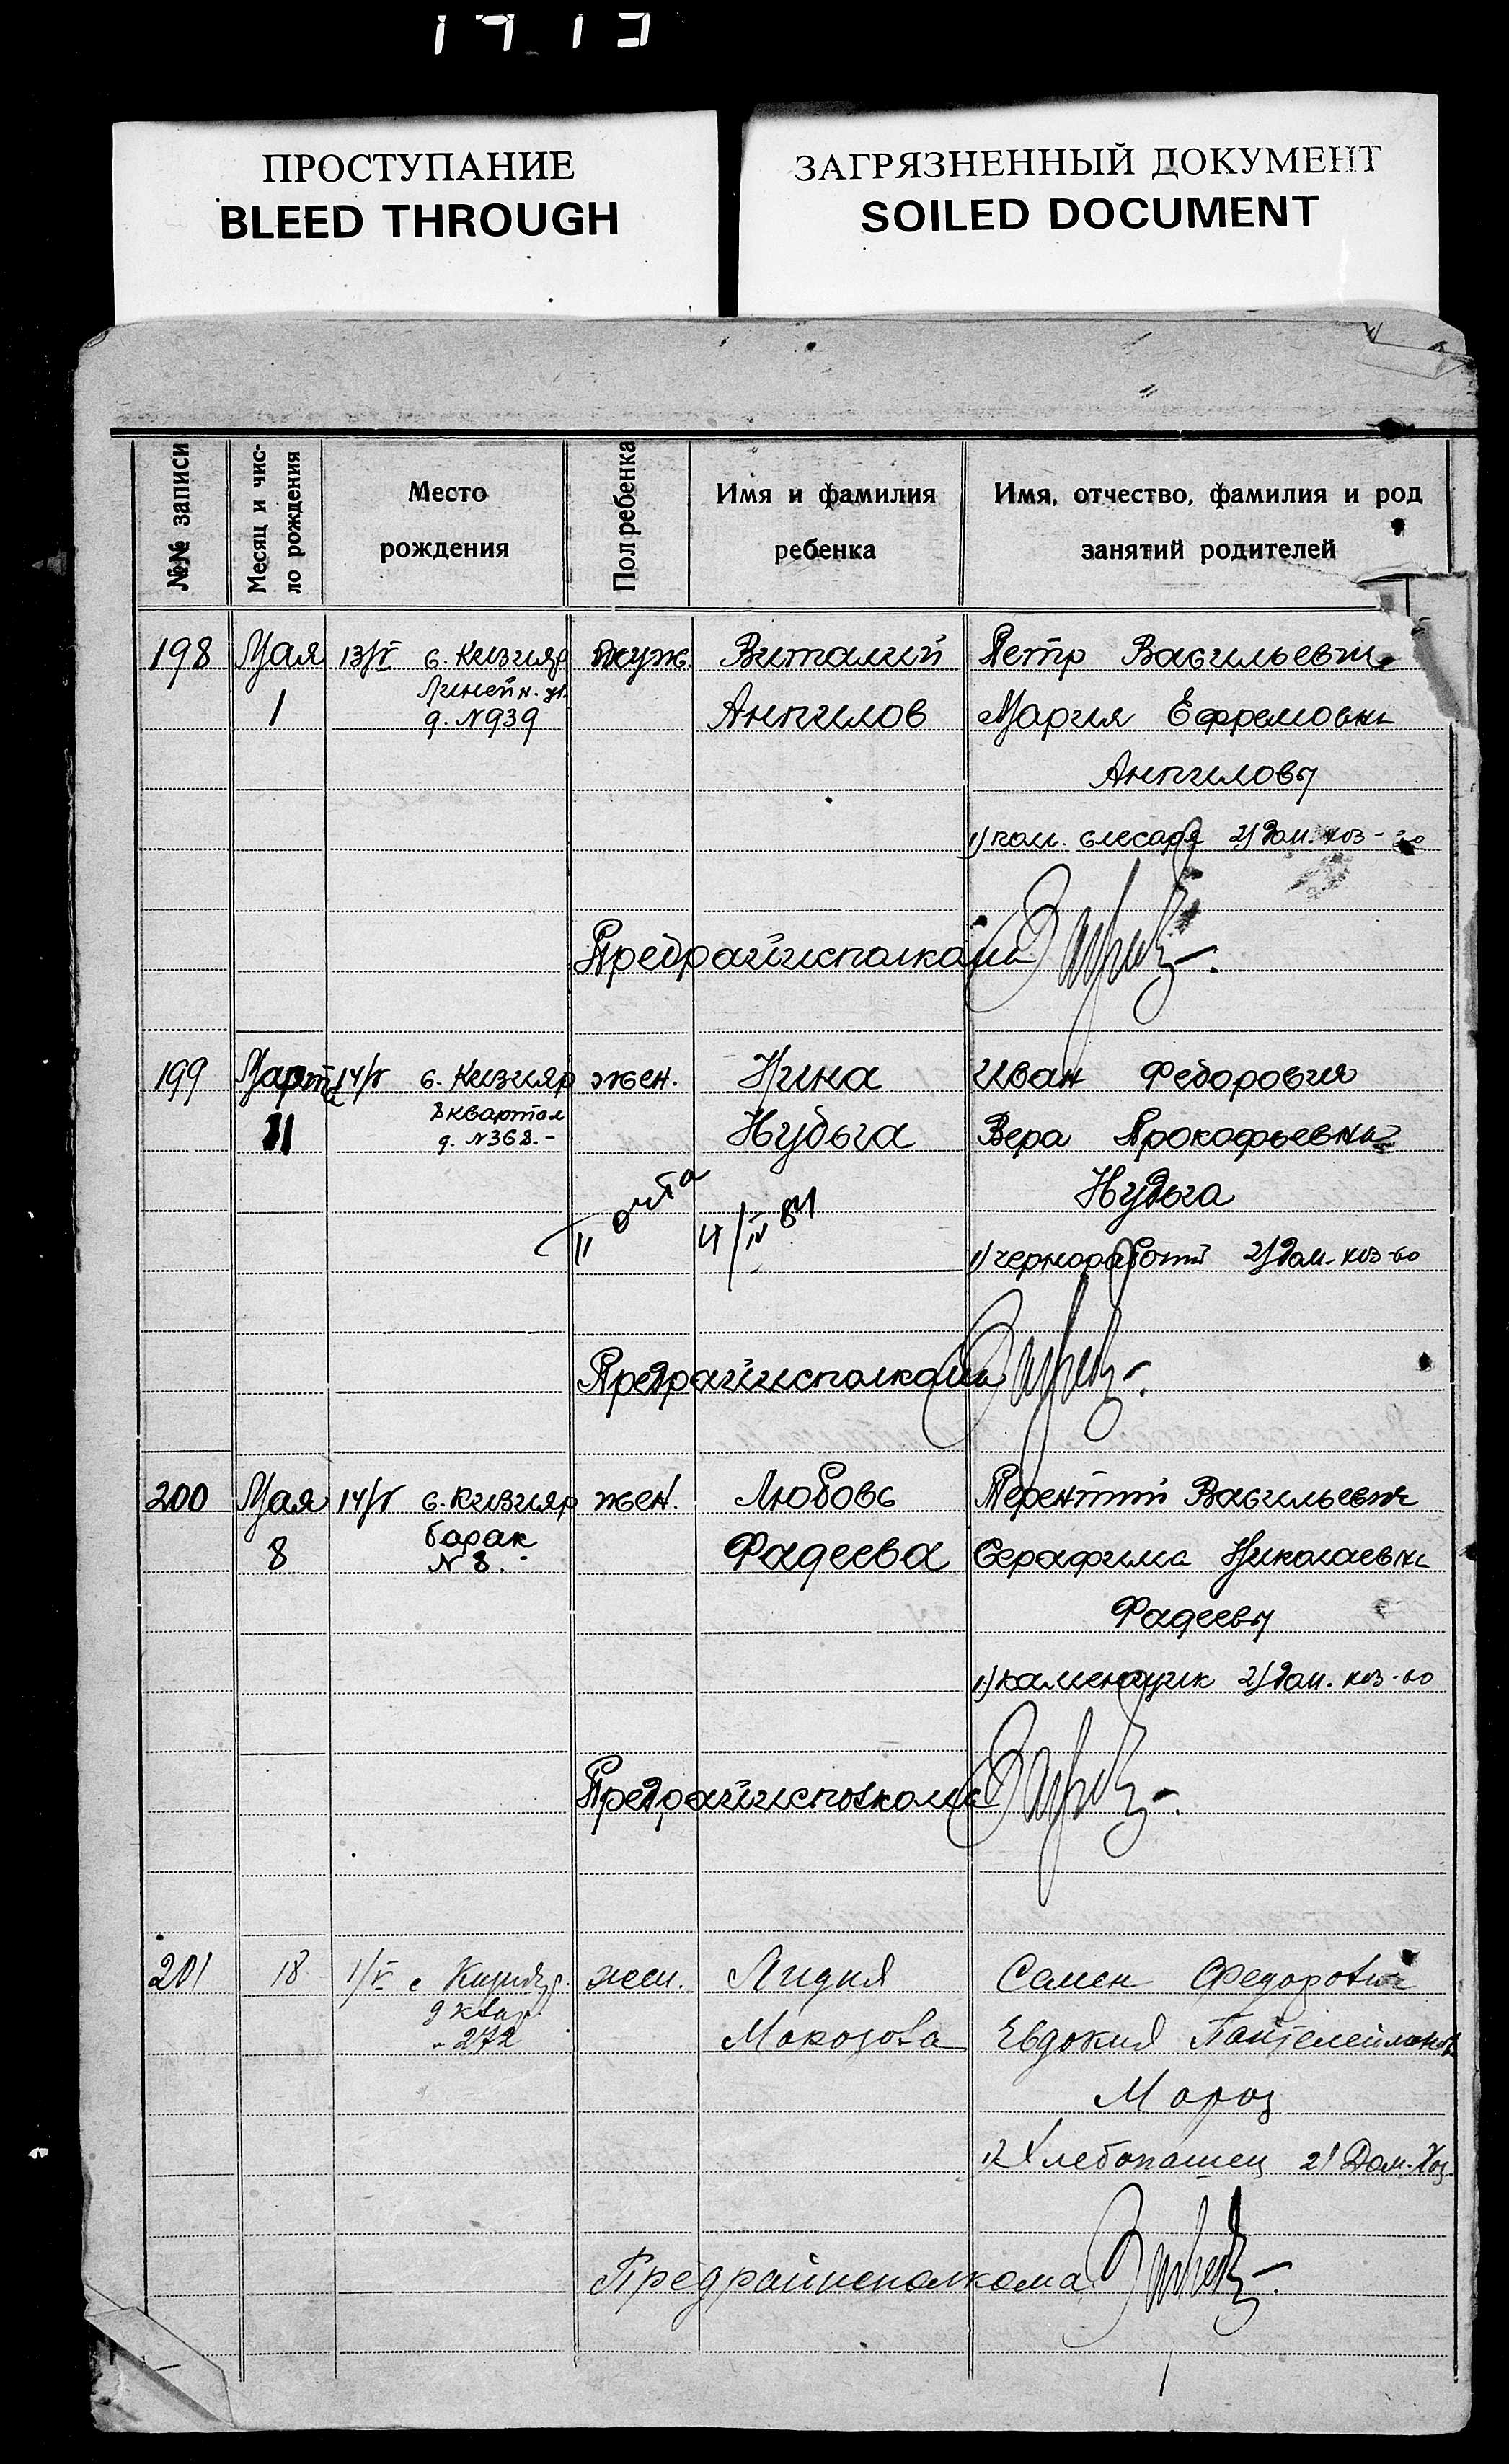 ПРОСТУПАНИЕ
BLEED THROUGH
ЗАГРЯЗНЕННЫЙ ДОКУМЕНТ
SOILED DOCUMENT
№№ записи
Месяц и чис-
ло рождения
Место
рождения
Пол ребенка
Имя и фамилия
ребенка
Имя, отчество, фамилия и род
занятий родителей
198 Мая 13/V с. Кизияр муж. Виталий Петр Васильевич
Линейн. ул.
1 д. N939 Анпилов Мария Ефремовна
Анпиловы
1) пом. слесаря 2) дом. хоз-во
Предрайисполкома
199 Марта 14/V с. Кизияр жен. Нина Иван Федорович
8 квартал
11 д. N368.- Нудьга Вера Прокофьевна
Нудьга
II 4/IV 84
1) чернорабочий 2) дом-хоз-во
Предрайисполкома
200 Мая 14/V с. Кизияр жен. Любовь Терентий Васильевич
барак
8 N 8.- Фадеева Серафима Николаевна
Фадеевы
1) каменщик 2) дом. хоз-во
Предрайисполкома
201 18 1/V с Кизияр. жен. Лидия Семен Федорович
9 квар
272 Морозова Евдокия Пантелеймонов
Мороз
1) Хлебопашец 2) Дом. Хоз.
Предрайисполкома